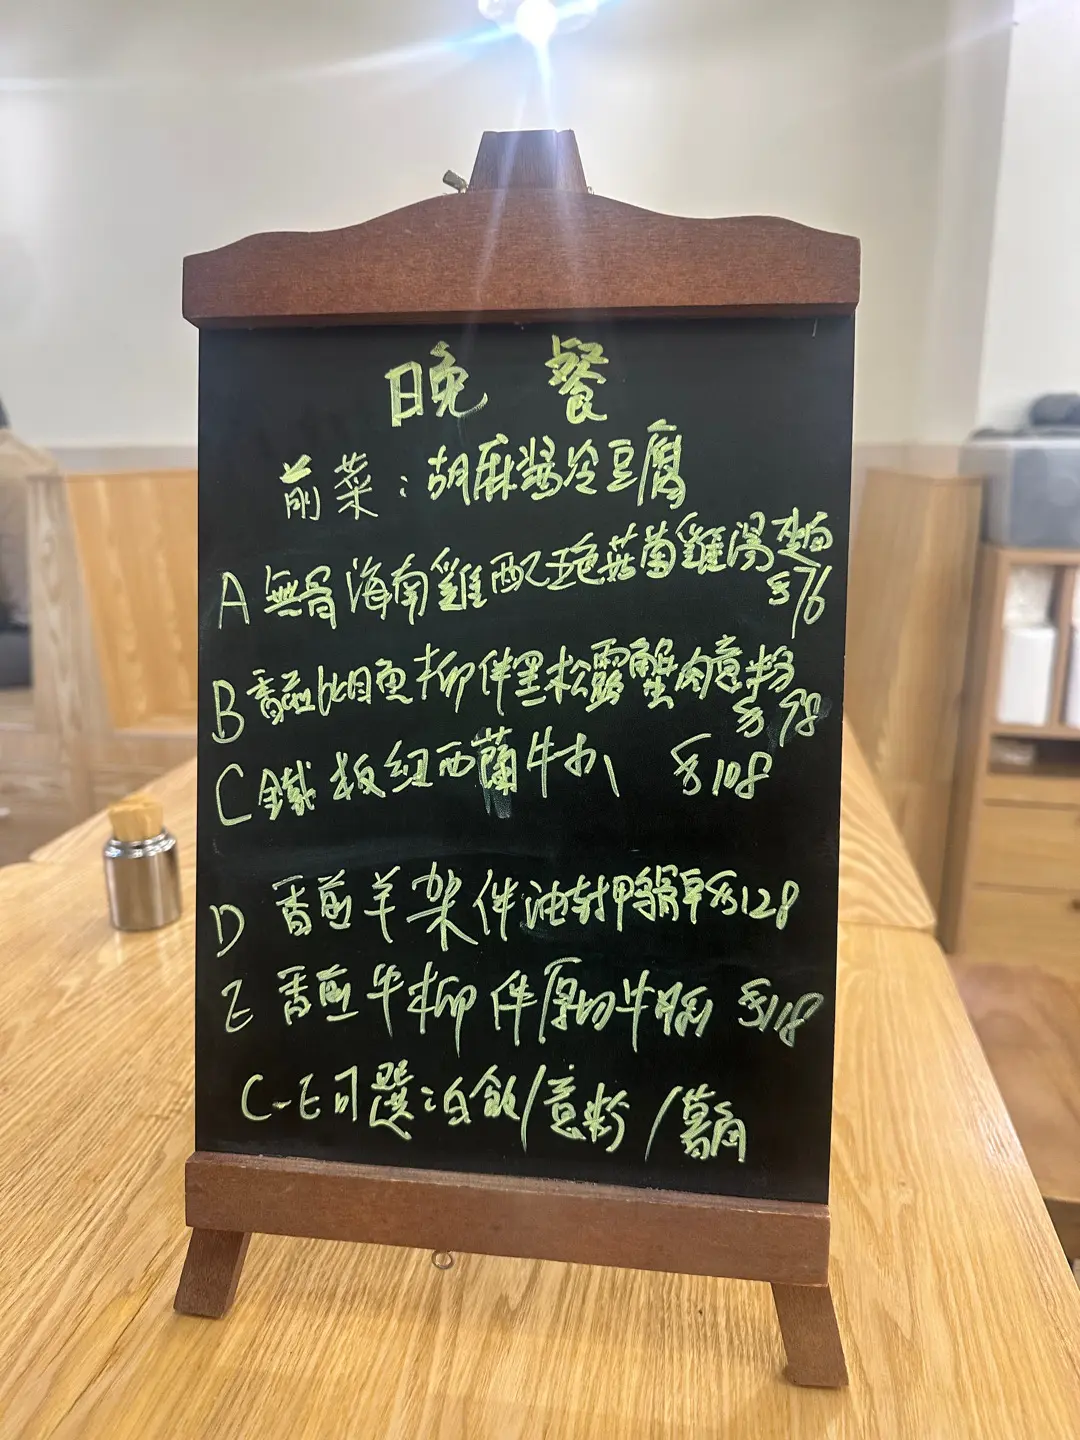 晚餐
前菜：胡麻醬冷豆腐
A 無骨海南雞配菇菌雞湯麵
$76
B 香煎比目魚柳伴黑松露蟹肉意粉
$98
C 鐵板紐西蘭牛扒 $108
D 香煎羊架伴油封鴨髀 $128
E 香煎牛柳伴厚切牛脷 $118
C-E可選白飯/意粉/薯角